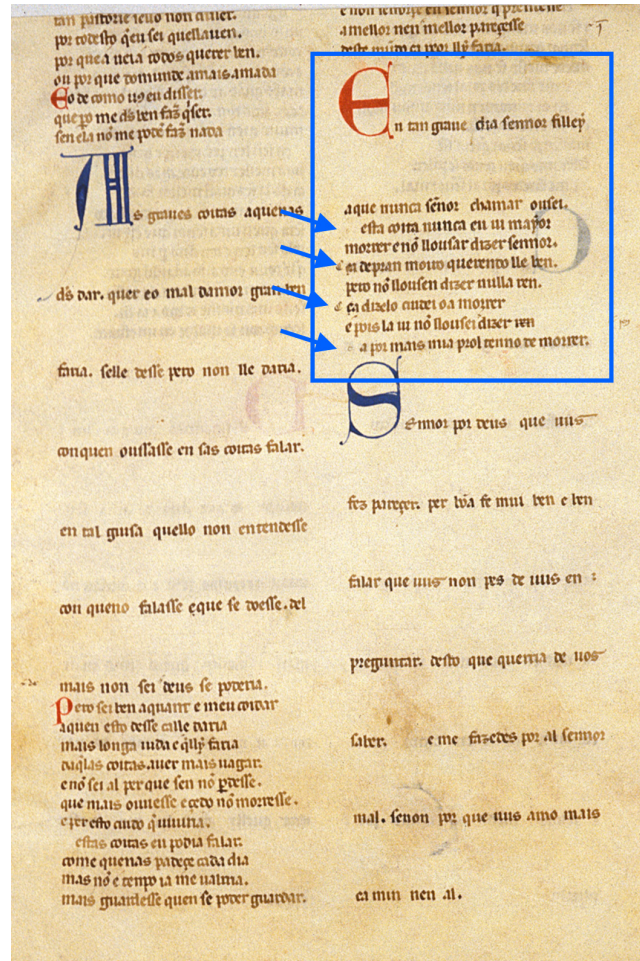 tan pastorie leuo non
por todesto q̄eu sei quellauen.
por que a ueia todos querer ben.
ou por que domunde amais amada
Eo de como uꝯ eu disser.
que pero me d̄s ben faz q̄ser.
sen ela nō me pode faz nada
As graues coitas aquenas
d̄s dar. quer eo mal damor gran ben
faria. selle desse pero non lle daria.
con quen oussasse en sas coitas falar.
en tal guisa quello non entendesse
con queno falasse e que se doesse. del
mais non sei deus se poderia.
Pero sei ben aquant e meu coidar
aquen esto desse ca lle daria
mais longa uida e q̄lly faria
daq̄las coitas. auer mais uagar.
e nō sei al per que sen nō perdesse.
que mais ouuesse e cedo nō morresse.
e per esto cuido q̄ uiuiria.
estas coitas eu podia falar.
come quenas padeçe cada dia
mas nō e tenpo ia me ualiria.
mais guardesse quen se poder guardar.
e non
a mellor nen mellor pareçesse
deste mūdo ca por lly faria.
En tan graue dia sennor filley
a que nunca sēnor chamar ousei.
esta coita nunca eu ui mayor
morrer e nō llousar dizer sennor.
ca de pran mouro querendo lle ben.
pero nō llousen dizer nulla ren.
ca dizelo cuidei oa morrer
e pois la ui nō llousei dizer ren
a por mais mia prol tenno de morrer.
Sennor por deus que uus
fez pareçer. per bōa fe mui ben e ben
falar que uus non pes de uus en
preguntar. desto que querria de uos
saber. e me fazedes por al sennor
mal. senon por que uus amo mais
ca min nen al.